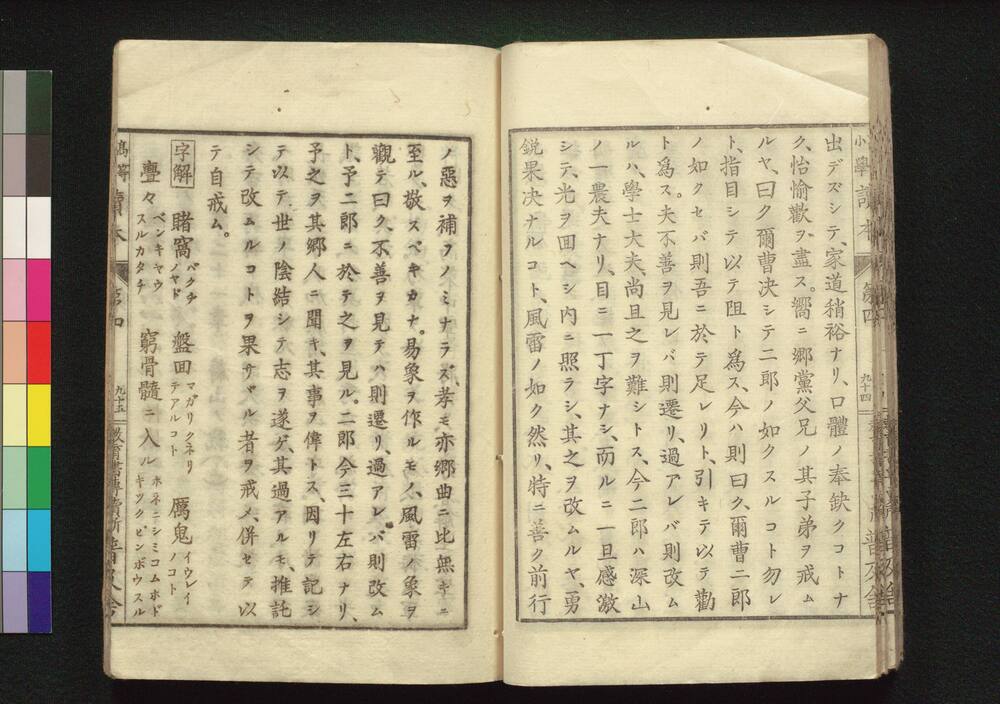 小學讀本
第四
九十四
普及舍
出デズシテ、家道稍裕ナリ、口體ノ奉缺クコトナ
ク、怡愉歡ヲ盡ス。嚮ニ郷黨父兄ノ其子弟ヲ戒ム
ルヤ、曰ク爾曹決シテ二郎ノ如クスルコト勿レ
ト、指目シテ以テ阻ト為ス、今ハ則曰ク、爾曹二郎
ノ如クセバ則吾ニ於テ足レリト、引キテ以テ勸
ト為ス。夫不善ヲ見レバ則遷リ、過アレバ則改ム
ルハ、學士大夫、尚且之ヲ難シトス、今二郎ハ深山
ノ一農夫ナリ、目ニ一丁字ナシ、而ルニ一旦感激
シテ、光ヲ囬ヘシ内ニ照ラシ、其之ヲ改ムルヤ、勇
鋭果决ナルコト、風雷ノ如ク然リ、特ニ善ク前行
ノ惡ヲ補フノミナラズ、孝モ亦郷曲ニ比無キニ
至ル、敬スベキカナ。易象ヲ作ルモノ、風雷ノ象ヲ
觀テ曰ク、不善ヲ見テハ則遷リ、過アレバ則改ム
ト、予二郎ニ於テ之ヲ見ル。二郎今三十左右ナリ、
予之ヲ其郷人ニ聞キ、其事ヲ偉トス、因リテ記シ
テ以テ、世ノ陰結シテ志ヲ遂ゲ、其過アルモ、推託
シテ改ムルコトヲ果サヾル者ヲ戒メ、併セテ以
テ自戒ム。
字解 賭窩 バクチノヤド 盤囬 マガリクネリテアルコト 厲鬼 イウレイノコト
亹々 ベンキヤウスルカタチ 窮骨髓ニ入ル ホネニシミコムホドキツクビンボウスル
讀本
九十五